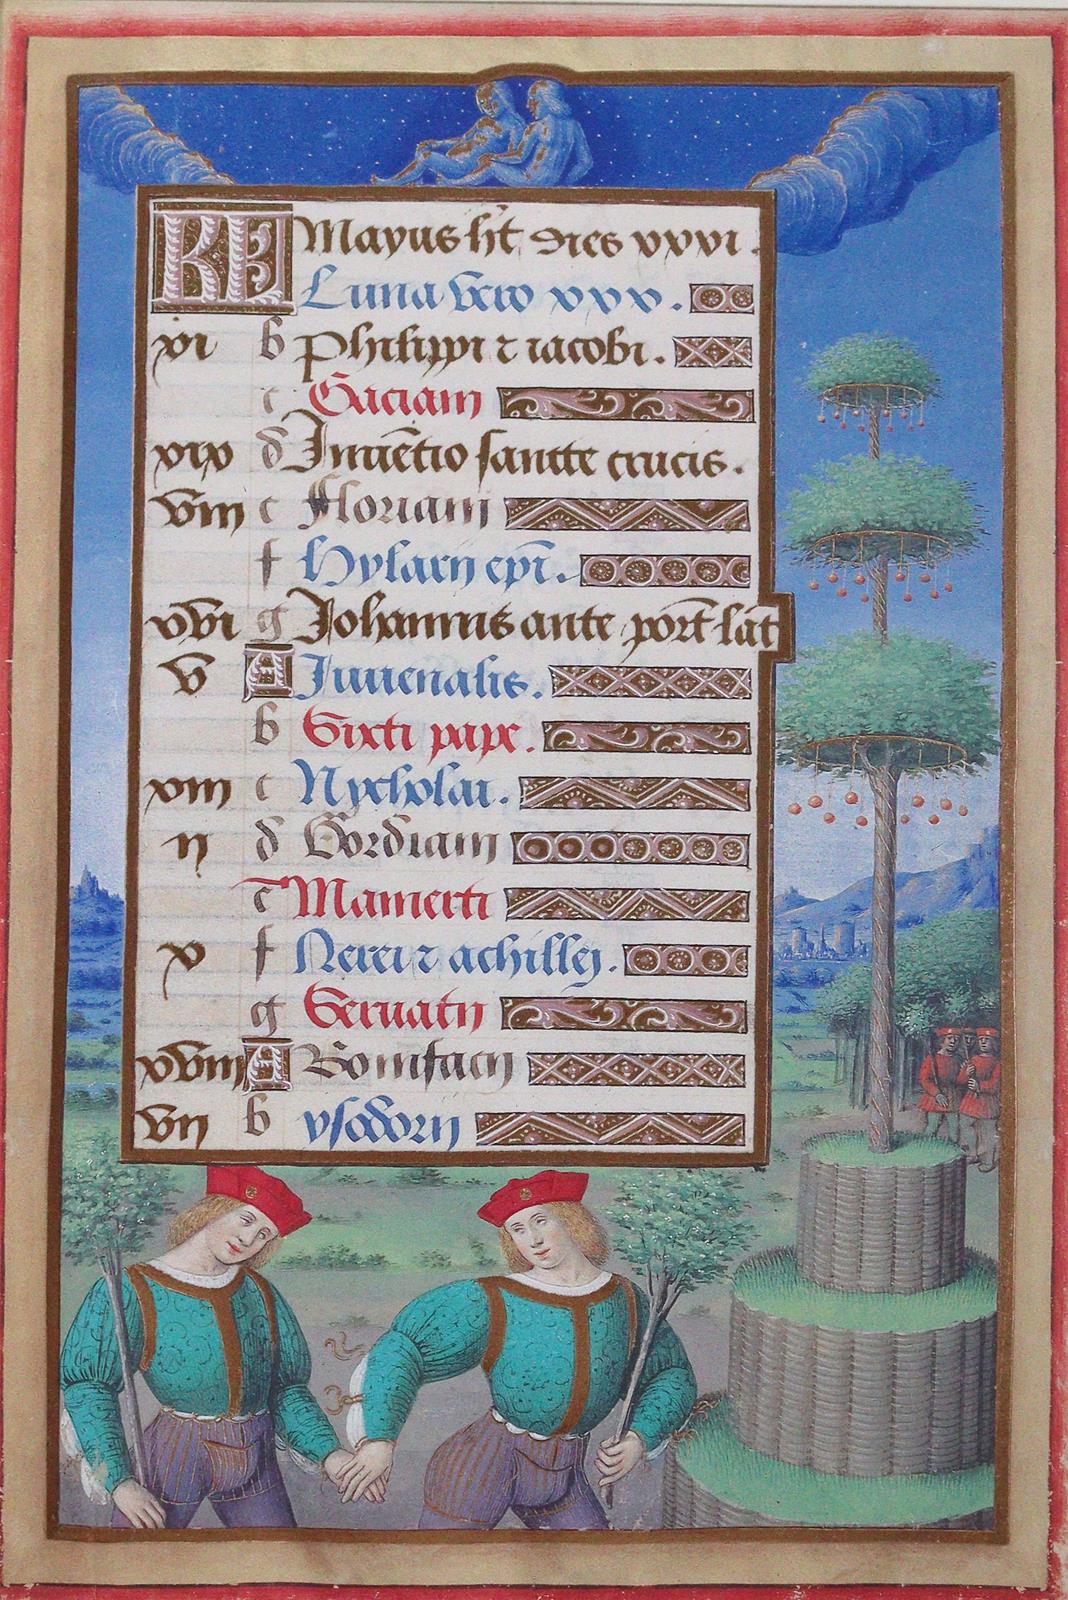 KL Mayus ht dies xxxi.
Luna vero xxx.
xi b Philippi ⁊ iacobi.
c Gaciani
xix d Inuētio sancte crucis.
viii e Floriani
f Hylarii epi.
xvi g Johannis ante port lat
v A Iuuenalis.
b Sixti pape.
xiii c Nycholai.
ii d Gordiani
e Mamerti
x f Nerei ⁊ achillei.
g Seruatii
xviii A Bonifacii
vii b ysodorii